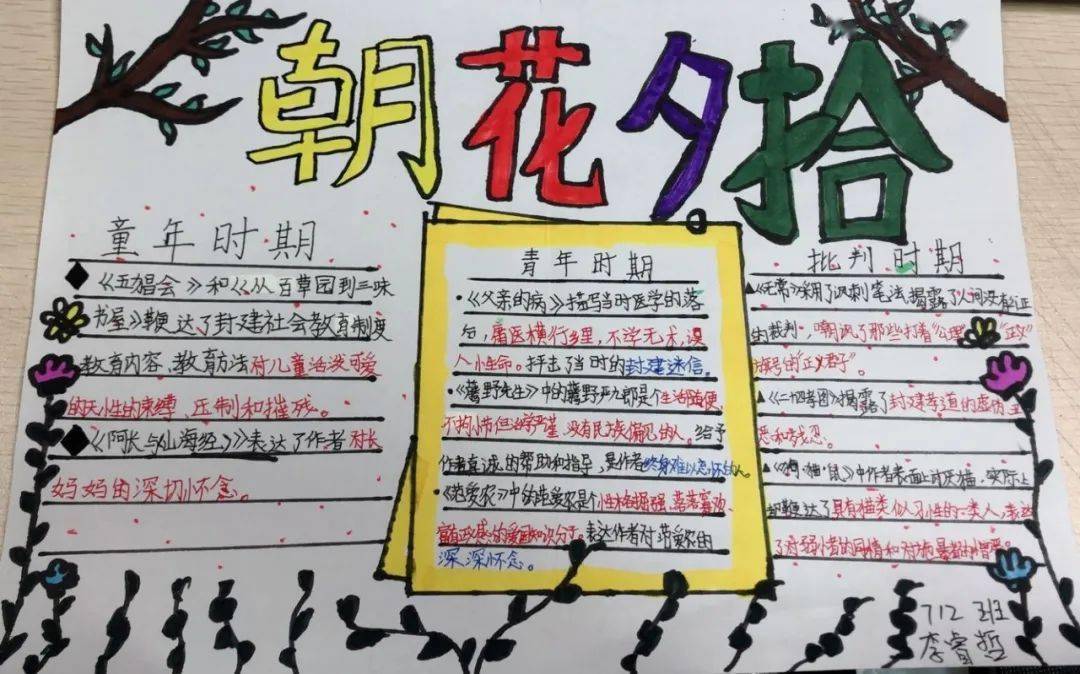 朝花夕拾
童年时期
◆《五猖会》和《从百草园到三味
书屋》鞭达了封建社会教育制度
教育内容、教育方法对儿童活泼可爱
的天性的束缚，压制和摧残。
◆《阿长与山海经》》表达了作者对长
妈妈的深切怀念。
青年时期
·《父亲的病》描写当时医学的落
后，庸医横行乡里，不学无术，误
人性命。抨击了当时的封建迷信。
·《藤野先生》中的藤野严九郎是个生活随便，
不拘小节但治学严谨，没有民族偏见的人。给予
作者真诚的帮助和指导，是作者终身难以忘怀的人。
·《范爱农》中的范爱农是个性格倔强、落落寡欢、
富有正义感的爱国知识分子。表达作者对范爱农的
深深怀念。
批判时期
▲《无常》采用了讽刺笔法，揭露了人间没有公正
的裁判，嘲讽了那些打着“公理”“正义”
旗号的“正义君子”。
▲《二十四孝图》揭露了封建孝道的虚伪
和残忍。
▲《狗·猫·鼠》中作者表面上讨厌猫，实际上
却鞭达了具有猫类似习性的一类人，表达
了对弱小者的同情和对施暴者的憎恶。
712班
李睿哲